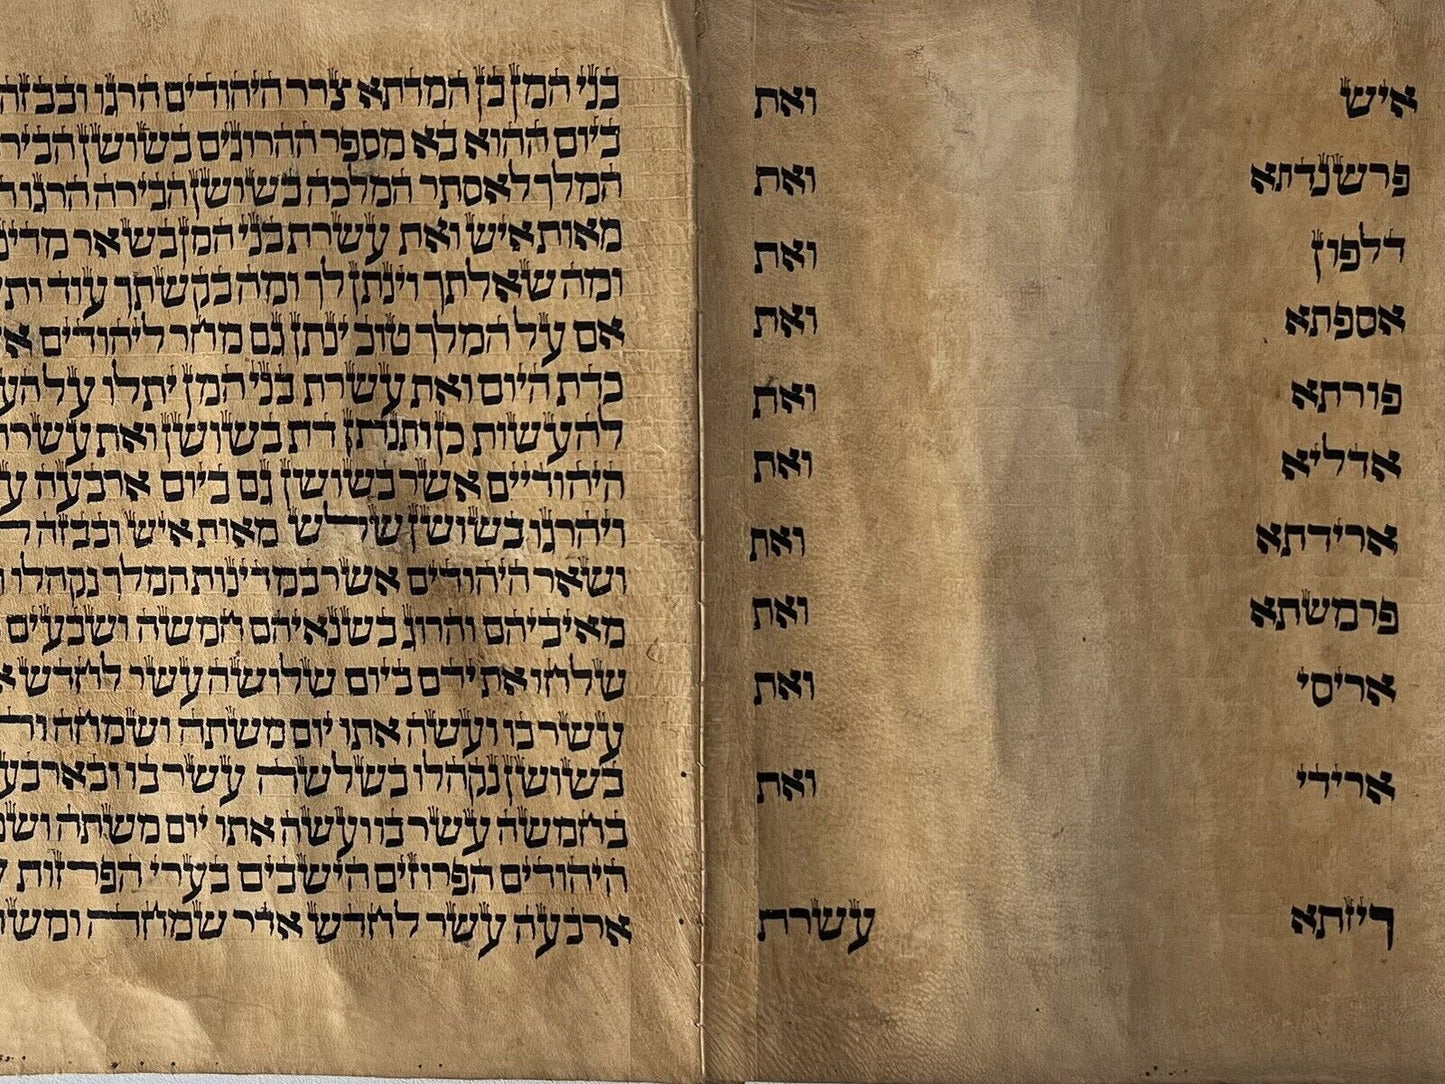 איש ואת
פרשנדתא ואת
דלפון ואת
אספתא ואת
פורתא ואת
אדליא ואת
ארידתא ואת
פרמשתא ואת
אריסי ואת
ארידי ואת
ויזתא עשרת
בני המן בן המדתא צרר היהודים הרגו ובבזה
ביום ההוא בא מספר ההרוגים בשושן הביר
המלך לאסתר המלכה בשושן הבירה הרגו
מאות איש ואת עשרת בני המן בשאר מדינ
ומה שאלתך וינתן לך ומה בקשתך עוד ות
אם על המלך טוב ינתן גם מחר ליהודים
כדת היום ואת עשרת בני המן יתלו על הע
להעשות כן ותנתן דת בשושן ואת עשרת
היהודיים אשר בשושן גם ביום ארבעה ע
ויהרגו בשושן שלש מאות איש ובבזה ל
ושאר היהודים אשר במדינות המלך נקהלו
מאיביהם והרוג בשנאיהם חמשה ושבעים
שלחו את ידם ביום שלושה עשר לחדש א
עשר בו ועשה אתו יום משתה ושמחה
בשושן נקהלו בשלשה עשר בו ובארבע
בחמשה עשר בו ועשה אתו יום משתה ושמ
היהודים הפרוזים הישבים בערי הפרזות
ארבעה עשר לחדש אדר שמחה ומש